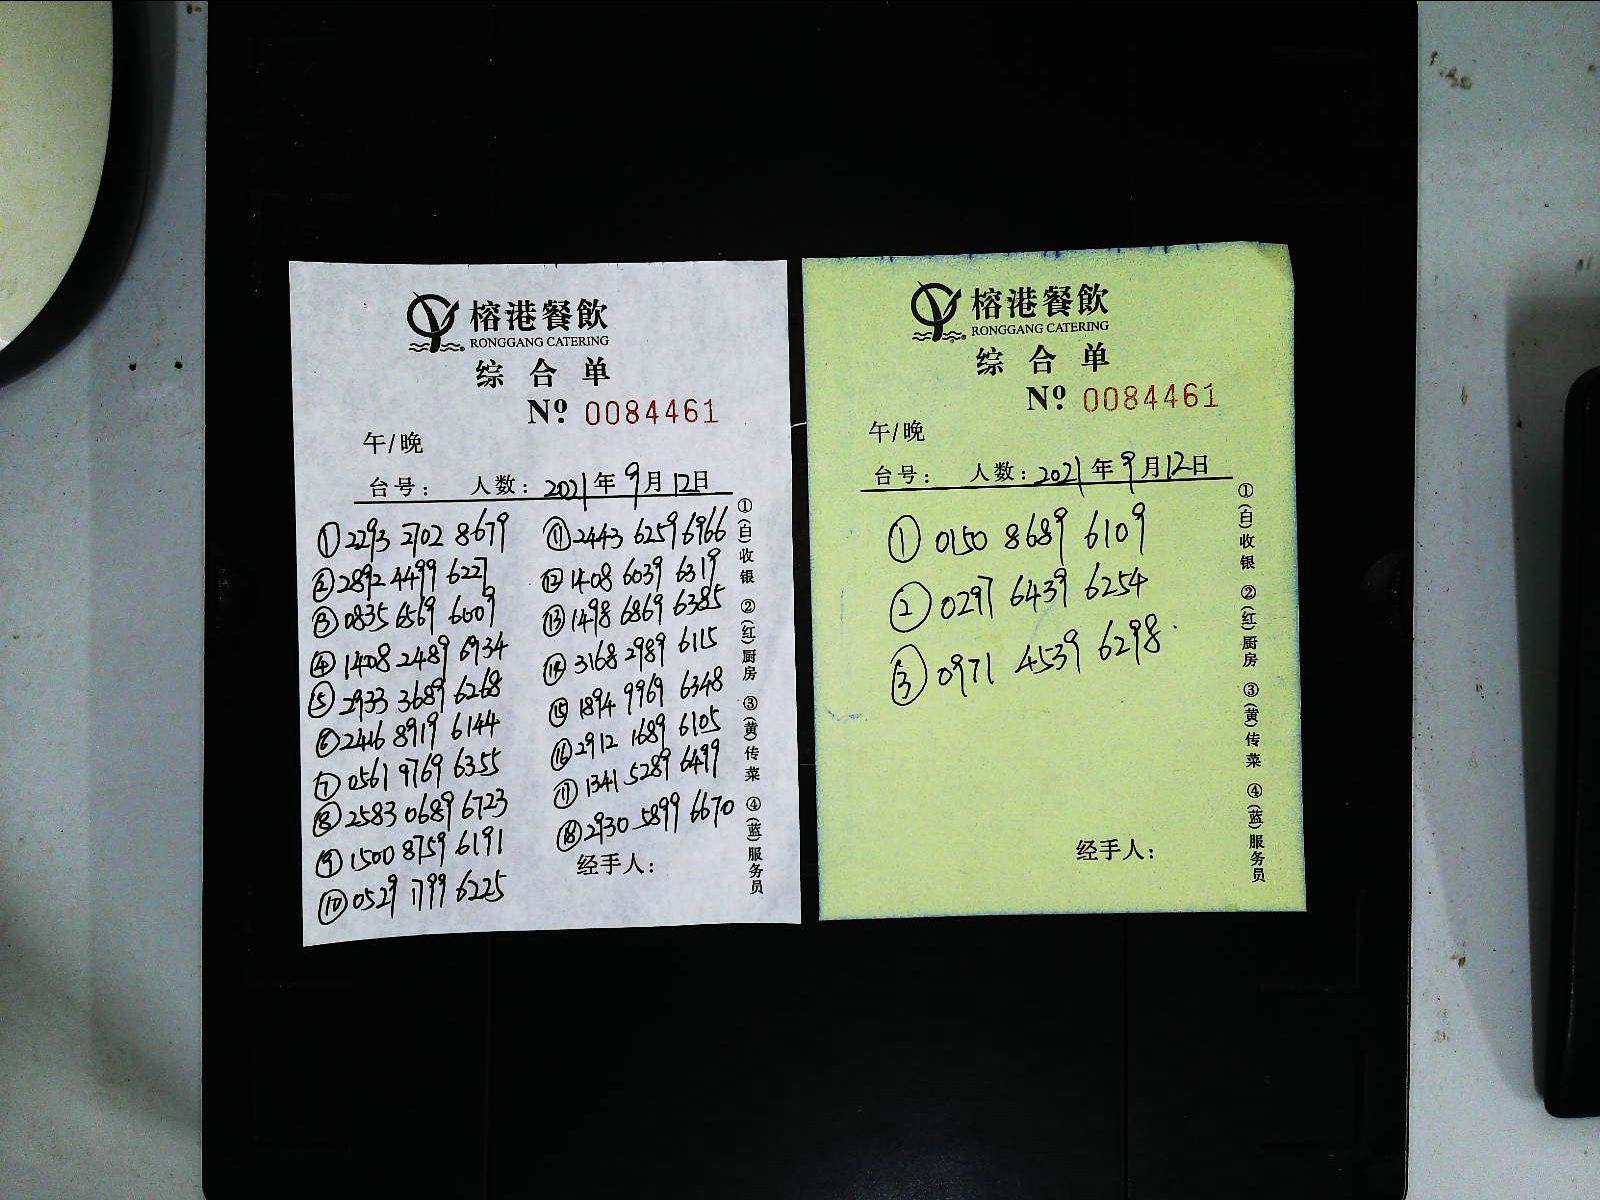 榕港餐飲
RONGGANG CATERING
综合单
Nº 0084461
午/晚
台号： 人数：2021年9月12日
① 2293 2702 8679
② 2892 4499 6227
③ 0835 6569 6009
④ 1408 2489 6934
⑤ 2933 3689 6268
⑥ 2416 8919 6144
⑦ 0561 9769 6355
⑧ 2583 0689 6723
⑨ 1500 8759 6191
⑩ 0529 1799 6225
⑪ 2443 6259 6966
⑫ 1408 6039 6319
⑬ 1498 6869 6385
⑭ 3168 2989 6115
⑮ 1894 9969 6348
⑯ 2912 1689 6105
⑰ 1341 5289 6499
⑱ 2930 5899 6670
经手人：
①(白)收银 ②(红)厨房 ③(黄)传菜 ④(蓝)服务员
榕港餐飲
RONGGANG CATERING
综合单
Nº 0084461
午/晚
台号： 人数：2021年9月12日
① 0150 8689 6109
② 0297 6439 6254
③ 0971 4539 6298.
经手人：
①(白)收银 ②(红)厨房 ③(黄)传菜 ④(蓝)服务员